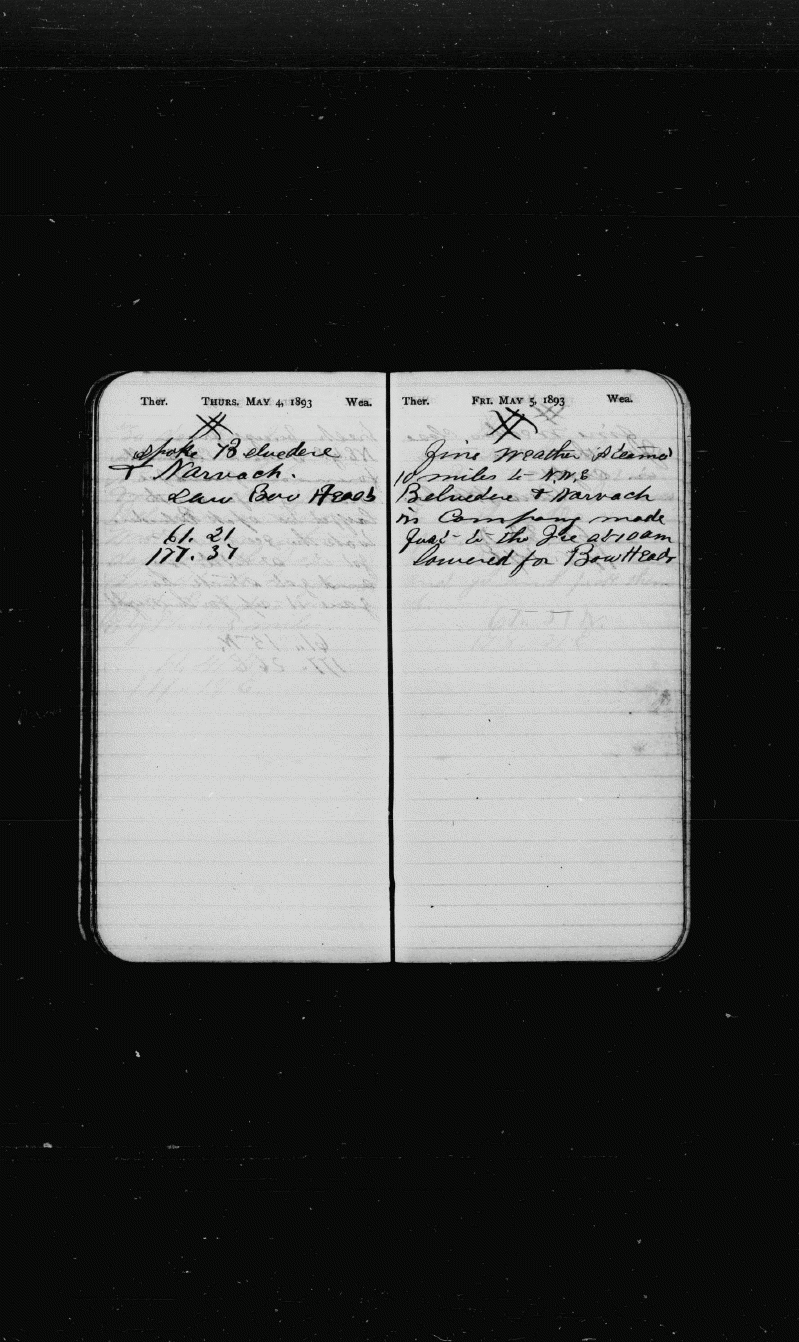 Ther. THURS. MAY 4, 1893 Wea.
spoke Belvedere
+ Narvach.
Saw Bow Heads
61. 21
177. 37
Ther. FRI. MAY 5, 1893 Wea.
Fine Weather Steamd
10 miles to N.N.E
Belvedere + Narvach
in Company made
fast to the Ice at 10 am
lowered for Bow Heads